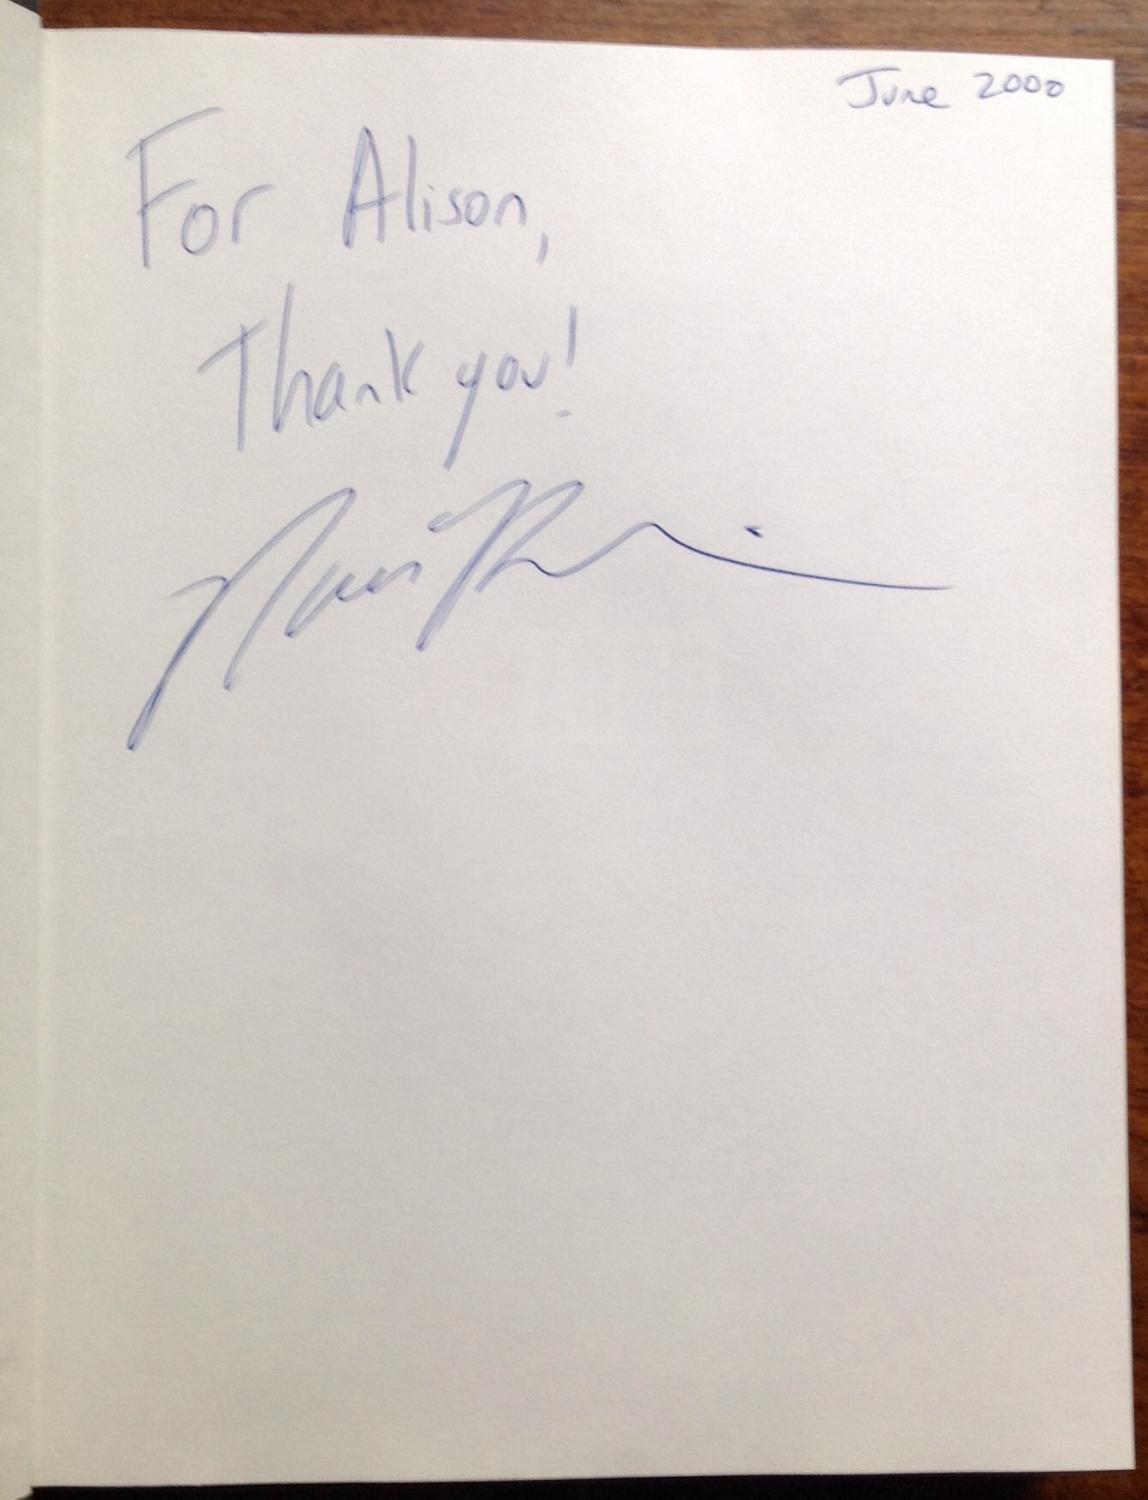 June 2000
For Alison,
Thank you!